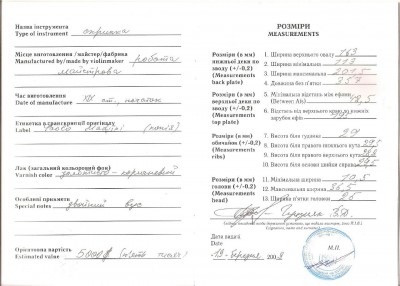 Назва інструмента
Type of instrument скрипка
Місце виготовлення / майстер/фабрика
Manufactured by/made by violinmaker робота
майстрова
Час виготовлення
Date of manufacture XX ст., початок
Етикетка з транскрипцією оригіналу
Label Paolo Maggini (копія)
Лак (загальний кольоровий фон)
Varnish color золотисто - коричневий
Особливі прикмети
Special notes двойний вус
Орієнтовна вартість
Estimated value 5000$ (п'ять тисяч)
РОЗМІРИ
MEASUREMENTS
Розміри (в мм)
нижньої деки по
зводу (+/-0,2)
(Measurements
back plate)
1. Ширина верхнього овалу 163
2. Ширина мінімальна 113
3. Ширина максимальна 201,5
4. Довжина без п'ятки 357
Розміри (в мм)
верхньої деки по
зводу (+/-0,2)
(Measurements
top plate)
5. Мінімальна відстань між ефами
(Between Ais) 48,5
6. Відстань від верхнього краю до ножів
зарубок ефів 191
Розміри (в мм)
обичайок (+/-0,2)
(Measurements
ribs)
7. Висота біля гудзика 29
8. Висота біля правого нижнього кута 29,5
9. Висота біля правого верхнього кута 28,8
10. Висота біля основи шийки 29,5
Розміри (в мм)
голови (+/-0,2)
(Measurements
head)
11. Ширина мінімальна 10,5
12. Максимальна ширина 36,5
13. Ширина п'ятки 26
Дата видачі
Date
"19" березня 2008
М.П.